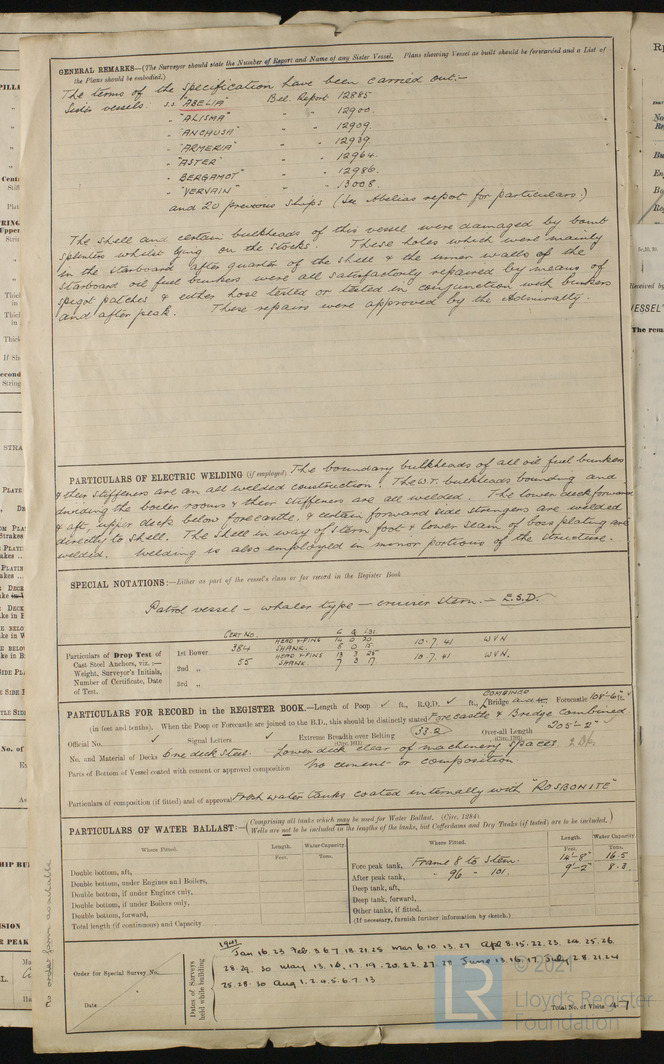 GENERAL REMARKS—(The Surveyor should state the Number of Report and Name of any Sister Vessel. Plans showing Vessel as built should be forwarded and a List of
the Plans should be embodied.)
The terms of the specification have been carried out:-
Sister vessels. s.s "ABELIA" Bel. Report 12885
" "ALISMA" " " 12900.
" "ANCHUSA" " " 12909.
" "ARMERIA" " " 12939.
" "ASTER" " " 12964.
" BERGAMOT" " " 12986.
" "VERVAIN" " " 13008.
and 20 previous ships (See Abelias report for particulars.)
The shell and certain bulkheads of this vessel were damaged by bomb
splinters whilst lying on the stocks. These holes which were mainly
in the starboard after quarter of the shell & the inner walls of the
starboard oil fuel bunkers were all satisfactorily repaired by means of
spigot patches & either hose tested or tested in conjunction with bunkers
and after peak. These repairs were approved by the Admiralty.
PARTICULARS OF ELECTRIC WELDING (if employed) The boundary bulkheads of all oil fuel bunkers
& their stiffeners are an all welded construction. The W.T. bulkheads bounding and
dividing the boiler rooms & their stiffeners are all welded. The lower deck forward
& aft, upper deck below forecastle, & certain forward side stringers are welded
directly to shell. The shell in way of stern foot & lower seam of boss plating are
welded. Welding is also employed in minor portions of the structure.
SPECIAL NOTATIONS:—Either as part of the vessel's class or for record in the Register Book
Patrol vessel - whaler type - cruiser stern. - E.S.D.
CERT NO.
Particulars of Drop Test of
Cast Steel Anchors, viz. :—
Weight, Surveyor's Initials,
Number of Certificate, Date
of Test.
1st Bower 384 HEAD & PINS
SHANK. 10.7.41 WVN
2nd " 55 HEAD & PINS
SHANK 10.7.41 WVN.
3rd "
PARTICULARS FOR RECORD in the REGISTER BOOK.—Length of Poop ✓ ft., R.Q.D. ✓ ft., COMBINED Bridge and Forecastle 108'-6" ft.
(in feet and tenths). When the Poop or Forecastle are joined to the B.D., this should be distinctly stated Forecastle & Bridge Combined
Official No. ✓ Signal Letters ✓ Extreme Breadth over Belting (Circ. 1611) 33.2 Over-all Length 205'-2"
No. and Material of Decks One deck steel. Lower deck clear of machinery spaces 2 Dk.
Parts of Bottom of Vessel coated with cement or approved composition No cement or composition
Particulars of composition (if fitted) and of approval Fresh water tanks coated internally with "ROSBONITE"
PARTICULARS OF WATER BALLAST:—(Comprising all tanks which may be used for Water Ballast. (Circ. 1284)
Wells are not to be included in the lengths of the tanks, but Cofferdams and Dry Tanks (if tested) are to be included.)
Where Fitted. Length. Water Capacity.
Feet. Tons.
Double bottom, aft,
Double bottom, under Engines and Boilers,
Double bottom, if under Engines only,
Double bottom, if under Boilers only,
Double bottom, forward,
Total length (if continuous) and Capacity
Where Fitted. Length. Water Capacity.
Feet. Tons.
Fore peak tank, Frame 8 to Stem. 14'-8" 16.5
After peak tank, " 96 - 101. 9'-2" 8.3.
Deep tank, aft,
Deep tank, forward,
Other tanks, if fitted,
(If necessary, furnish further information by sketch.)
no order form available
Order for Special Survey No.
Date
Dates of Surveys
held while building
1941
Jan 16. 23 Feb. 3. 6. 7. 18. 21. 25 Mar 6. 10. 13. 27 Apl 8. 15. 22. 23. 24. 25. 26.
28. 29. 30 May 13. 16. 17. 19. 20. 22. 27. 28 June 13. 16. 17 July 8. 21. 24
25. 28. 30 Aug 1. 2. 4. 5. 6. 7. 13
Total No. of Visits 47
© 2021
LR
Lloyd's Register
Foundation